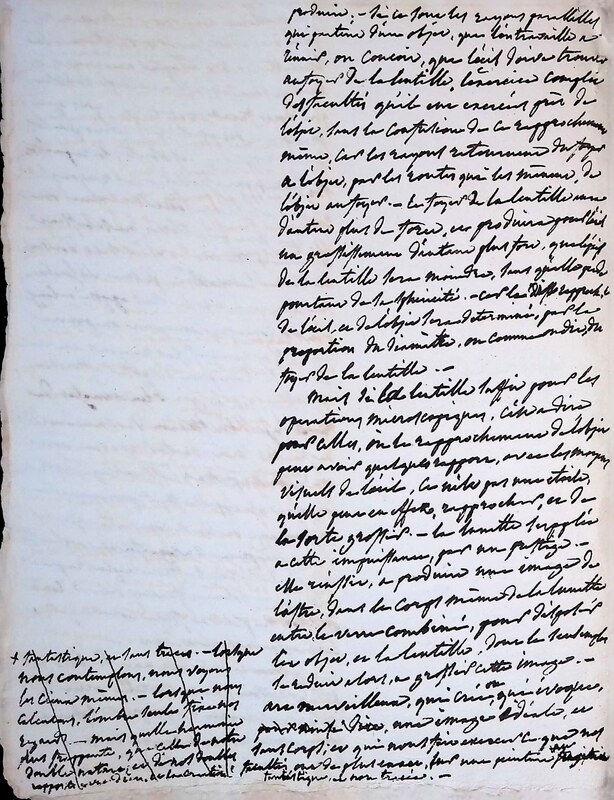 produire. - si ce sont les rayons paralleles
qui partent d'un objet, que l'on travaille a
réunir, on concoit, que l'œil doive trouver
au foyer de la lentille, l'exercice complet
des facultés qu'il eut exercées près de
l'objet, sans la confusion de ce rapprochement
même, car les rayons retournent du foyer
a l'objet, par les routes qui les menent, de
l'objet au foyer. - le foyer de la lentille aura
d'autant plus de force, et produira pour l'œil
un grossissement d'autant plus fort, que
de la lentille sera moindre, sans qu'elle perde
pourtant de sa sphericité. - car le rapproché
de l'œil, et de l'objet sera determiné, par la
proportion du diamètre, ou comme on dit, du
foyer de la lentille. -
mais si la lentille suffit pour les
operations microscopiques, c'est a dire
pour celles, où le rapprochement de l'objet
peut avoir quelque rapport, avec les moyens
visuels de l'œil, ce n'est pas une étoile,
qu'elle peut en effet, rapprocher, et de
la sorte grossir. - la lunette supplée
a cette impuissance, par un prestige. -
elle réussit, a produire une image de
l'astre, dans le corps même de la lunette
entre le verre combiné, pour
les objets, et la lentille, dont le
se reduit alors, a grossir cette image. -
art merveilleux, qui crée, ou qui évoque,
pour ainsi dire, une image idéale, et
sans corps, et qui nous fait exercer ce que nos
facultés ont de plus exact, sur une peinture
fantastique et non tracée. -
+ fantastique, et sans traces. - lorsque
nous contemplons, nous voyons
les cieux mêmes. - lorsque nous
calculons, l'ombre seule frappe nos
regards. - mais quelle harmonie
plus frappante, que celle de notre
double nature, et de nos doubles
rapports